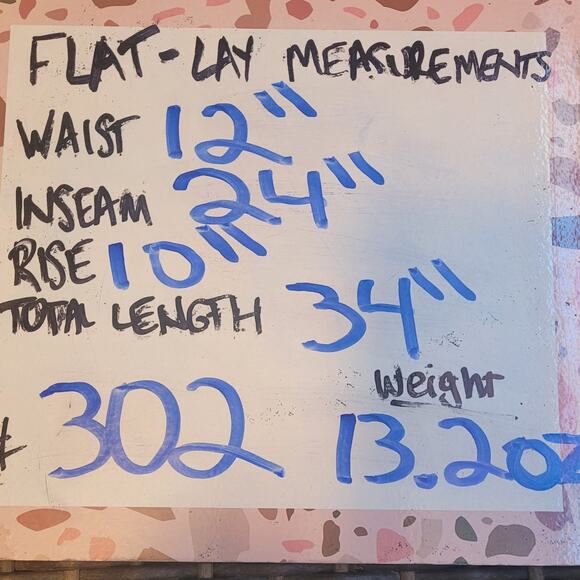 FLAT-LAY MEASUREMENTS
WAIST 12"
INSEAM 24"
RISE 10"
TOTAL LENGTH 34"
Weight
302 13.20z